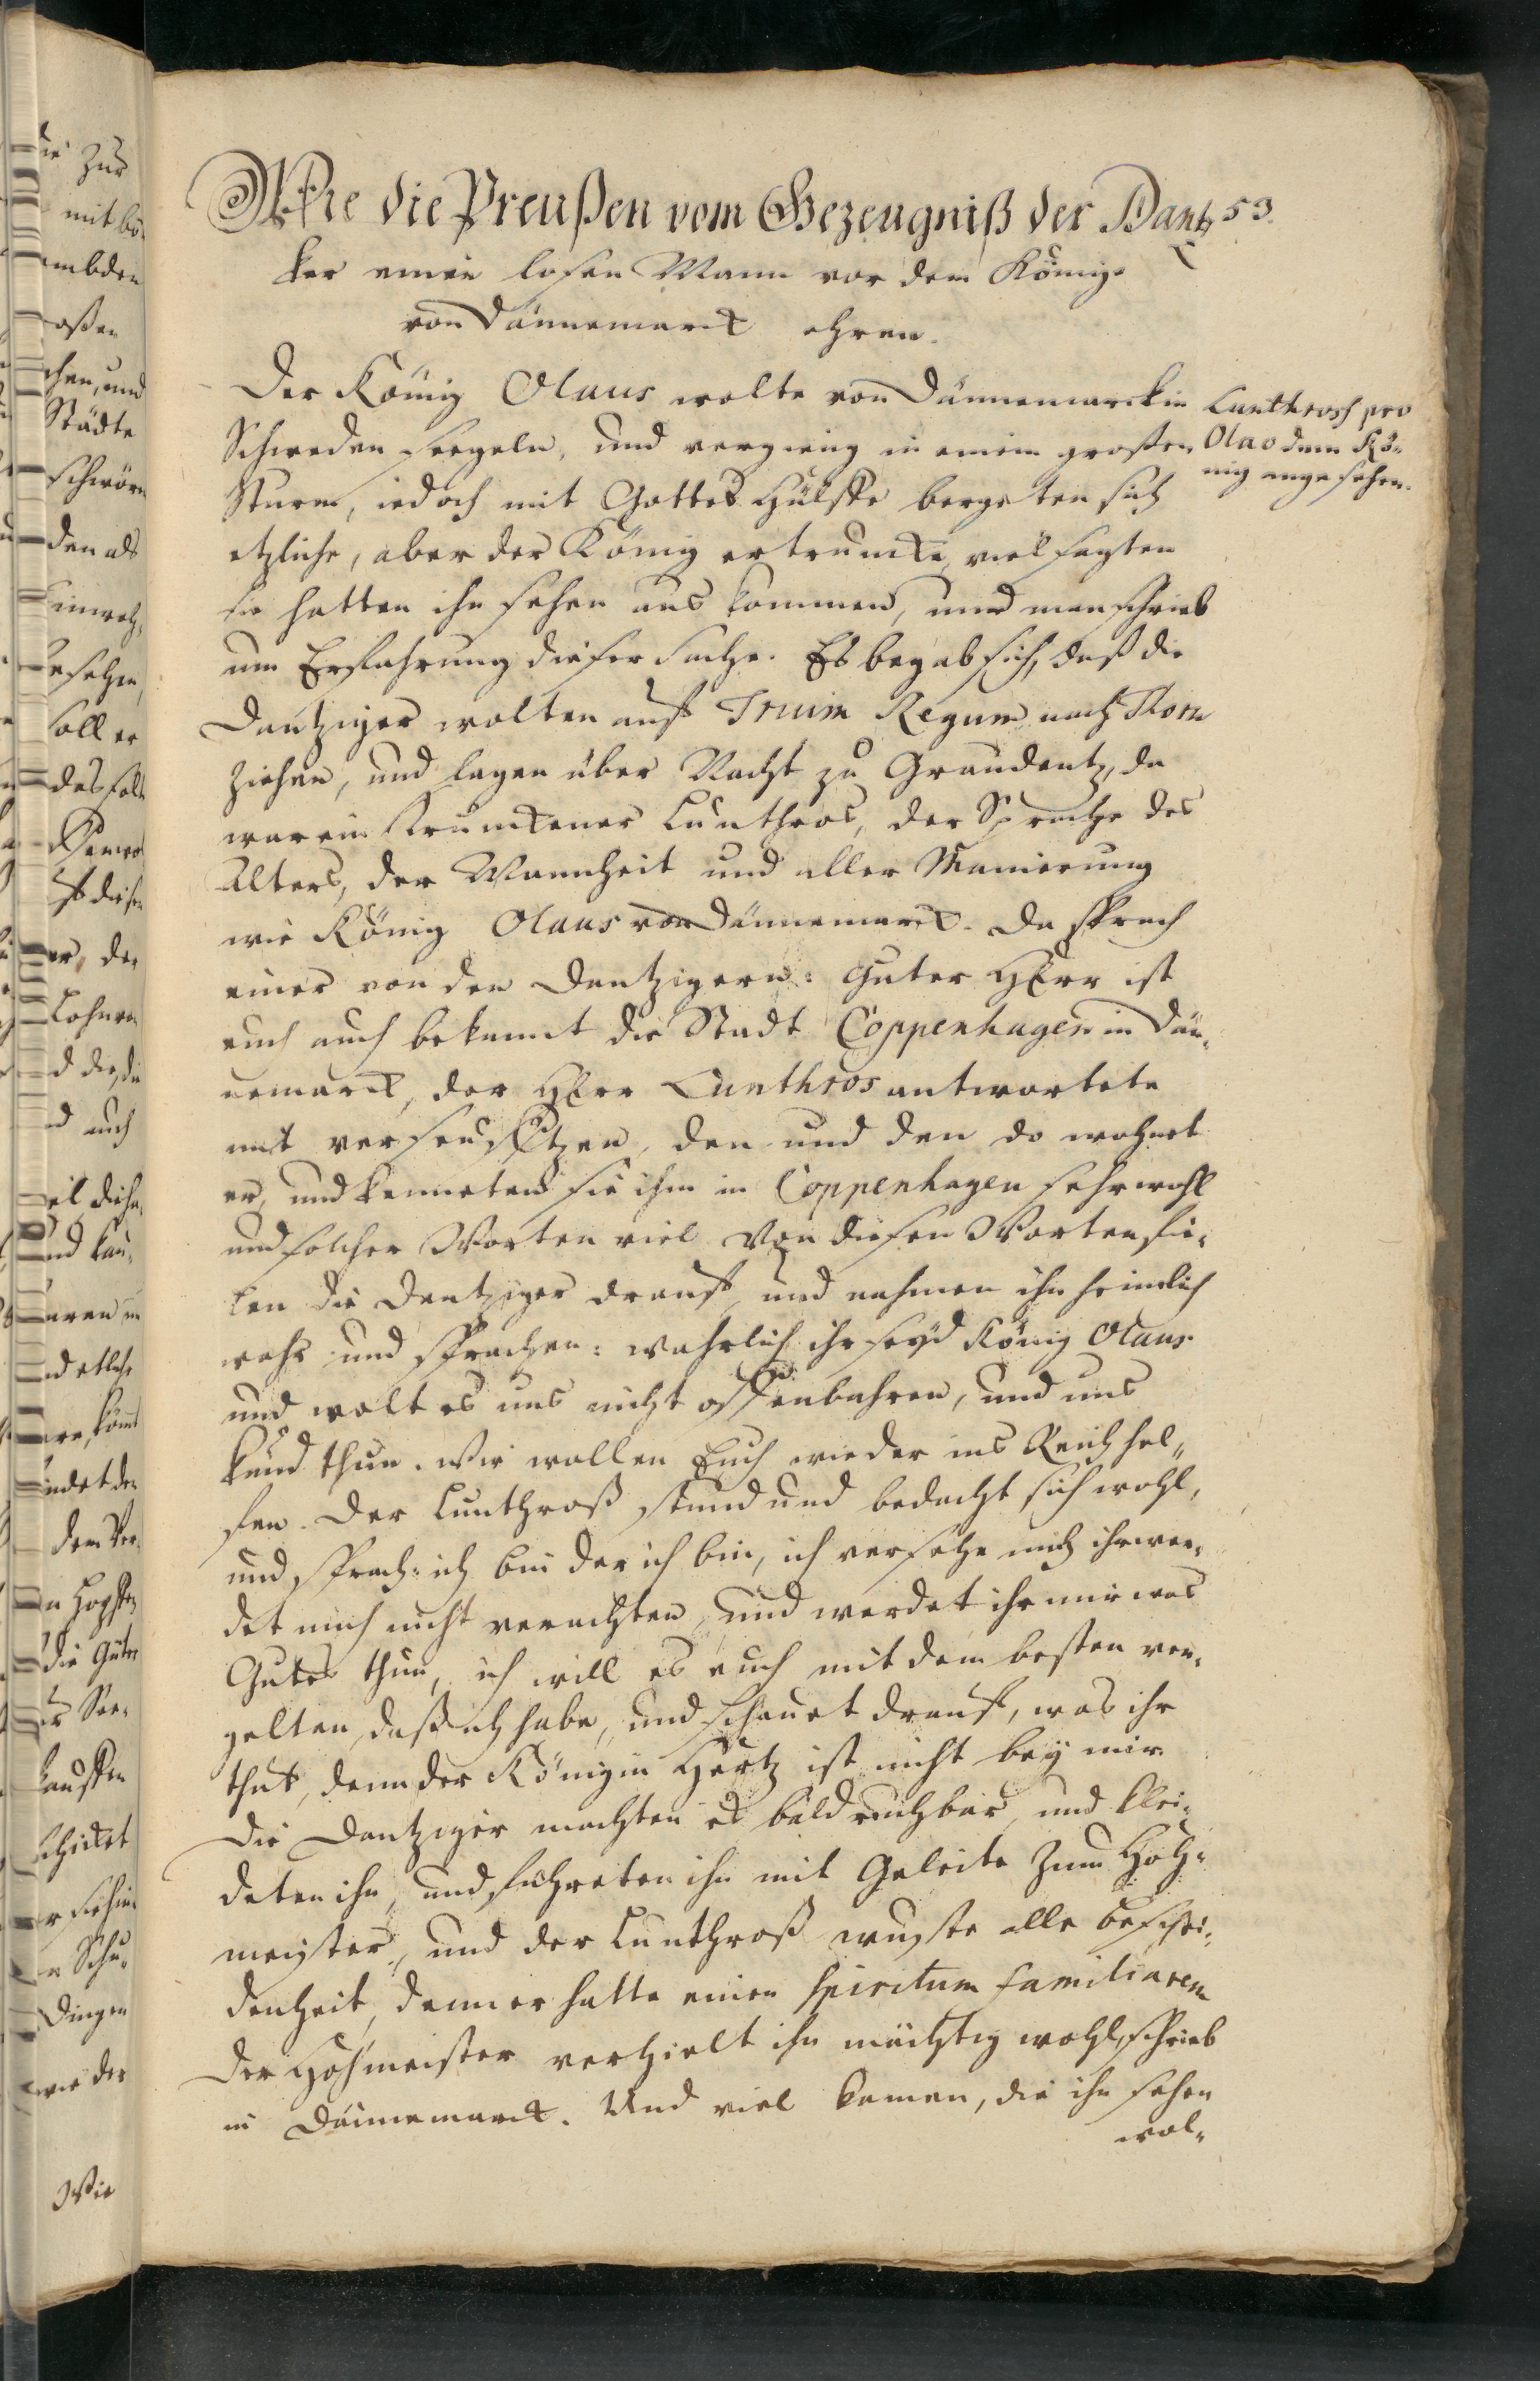 Wie die Preußen vom Gezeugniß der Dantz 53.
ker einen losen Mann vor dem Könige
von Dännemarck ehren.
Der König Olaus wolte von Dännemarck in
Schweden seegeln, und vergieng in einem großen
Sturm, iedoch mit Gottes Hülffe bergeten sich
etzliche, aber der König ertruncke, viel sagten
sie hatten ihn sehen aus kommen, und man schrieb
um Erfahrung dieser sache. Es begab sich, daß die
Dantziger wolten auf Trium Regum nach Thorn
ziehen, und lagen über Nacht zu Graudentz, da
war ein Lunthros, der Sprache des
Alters, der Mannheit und aller Manierung
wie König Olaus von Dännemarck. Da sprach
einer von den Dantzigern: Guter HErr ist
euch auch bekannt die Stadt Coppenhagen in Dän-
nemarck, der HErr Lunthros antwortete
mit verseufftzen, den und den do wohnet
er, und kenneten sie ihm in Coppenhagen sehr wohl
und solcher Worten viel Von diesen Worten fie-
len die Dantziger drauf, und nahmen ihn heimlich
wahr und sprachen: wahrlich ihr seyd König Olaus
und wolt es uns nicht offenbahren, und uns
kund thun. Wir wollen Euch wieder ins Reich hel-
fen. Der Lunthroß stund und bedacht sich wohl,
und sprach: ich bin der ich bin, ich versehe mich ihr wer-
det mich nicht verachten, und werdet ihr mir was
Gutes thun, ich will es euch mit dem besten ver-
gelten, daß ich habe, und schauet drauf, was ihr
thut, denn der Königin Hertz ist nicht bey mir
Die Dantziger machten es bald ruchbar, und klei-
deten ihn, und führeten ihn mit Geleite zum Hoh-
meister, und der Lunthroß wuste alle beschei-
denheit, denn er hatte einen Spiritum familiarem
Der Hohmeister verhielt ihn mächtig wohl, schrieb
in Dännemarck. Und viel kamen, die ihn sehen
wol-
Lunthrosch pro
Olao dem Kö-
nig angesehen.
zur
mit
Städte
schwör
den als
soll er
Lohn
auch
den
die Güter
kauffen
schicket
Dingen
wie der
Wie